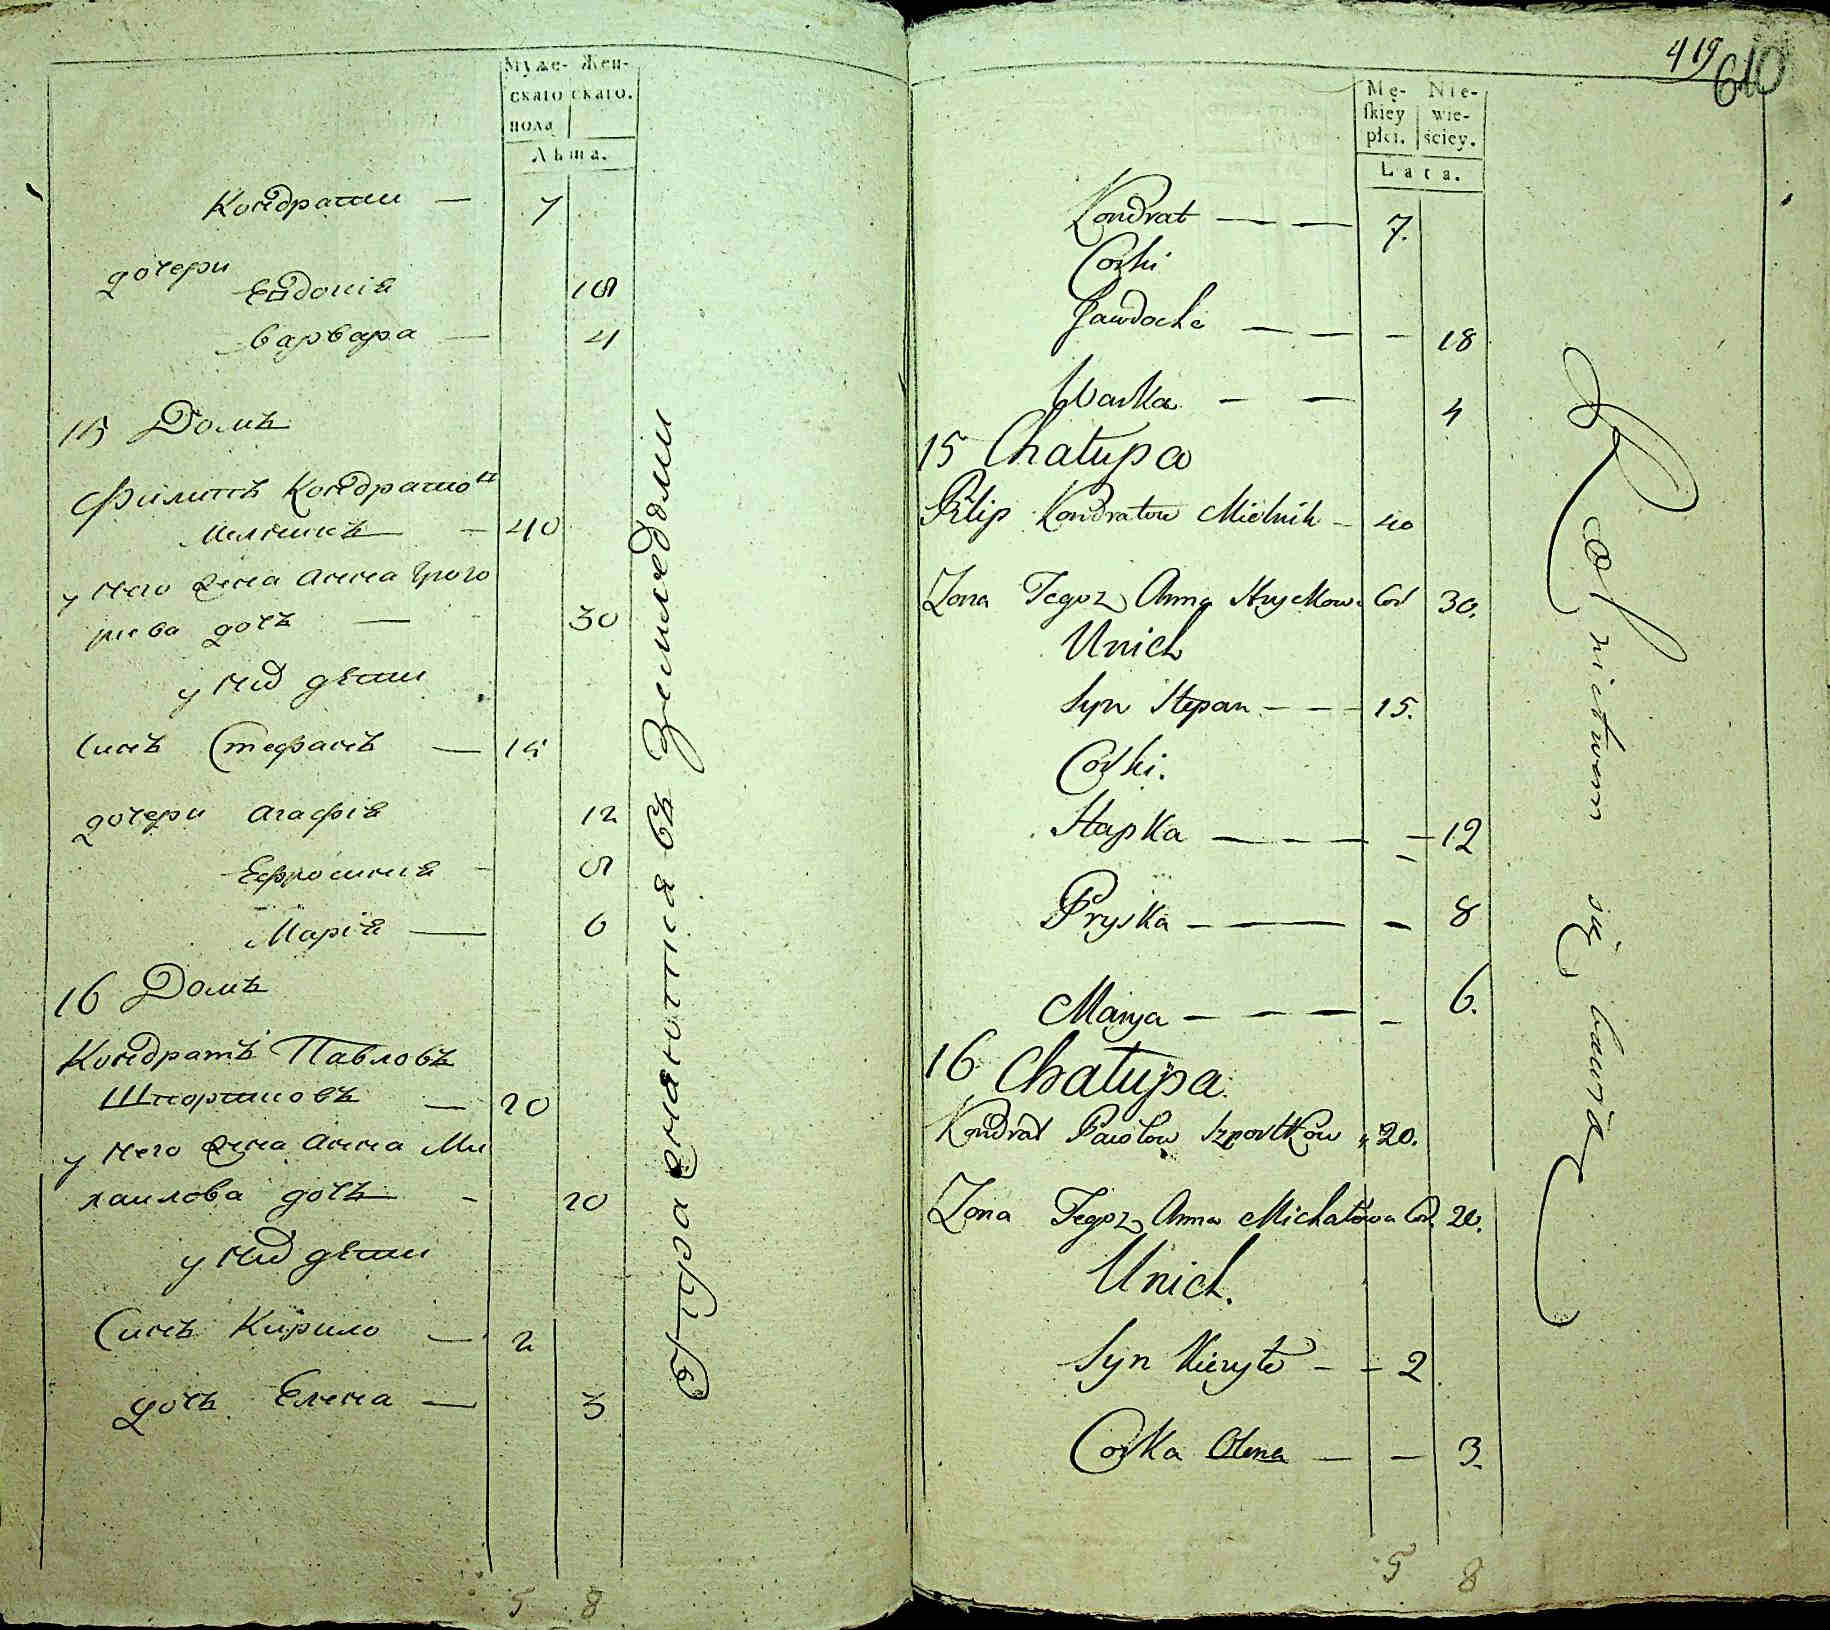 Муже- Жен-
скаго скаго.
пола
Лѣта.
Кондратий — 7
дочери
Евдокія 18
Варвара — 4
15 Домъ
Филипъ Кондратов
Мелникъ — 40
у него жена Анна Григо
риева дочь — 30
у них дѣти
Синъ Стефанъ — 15
дочери Агафія 12
Ефросинія - 8
Марія — 6
16 Домъ
Кондратъ Павловъ
Шпортковъ — 20
у него жена Анна Ми
хаилова дочь - 20
у них дѣти
Синъ Кирило — 2
дочь Елена — 3
5 8
Упражняются въ Земледѣлии
419
610
Mę- Nie-
skiey wie-
płci. ściey.
Lata.
Kondrat — — 7.
Corki
Jawdocha — — - 18
Warka — — 4
15 Chałupa
Filip Kondratow Mielnik - 40
Żona Tegoz Anna Hryckowa Cor 30.
Unich
Syn Stepan - - - 15.
Corki.
Hapka — — — — 12
Pryska — — - 8
Marya — — — - 6.
16 Chałupa
Kondrat Pawłow Szportkow „ 20.
Żona Tegoz Anna Michałowa Cor. 20.
Unich.
Syn Kiryło - - 2
Corka Olena — — 3.
5 8
Rolnictwem się bawią